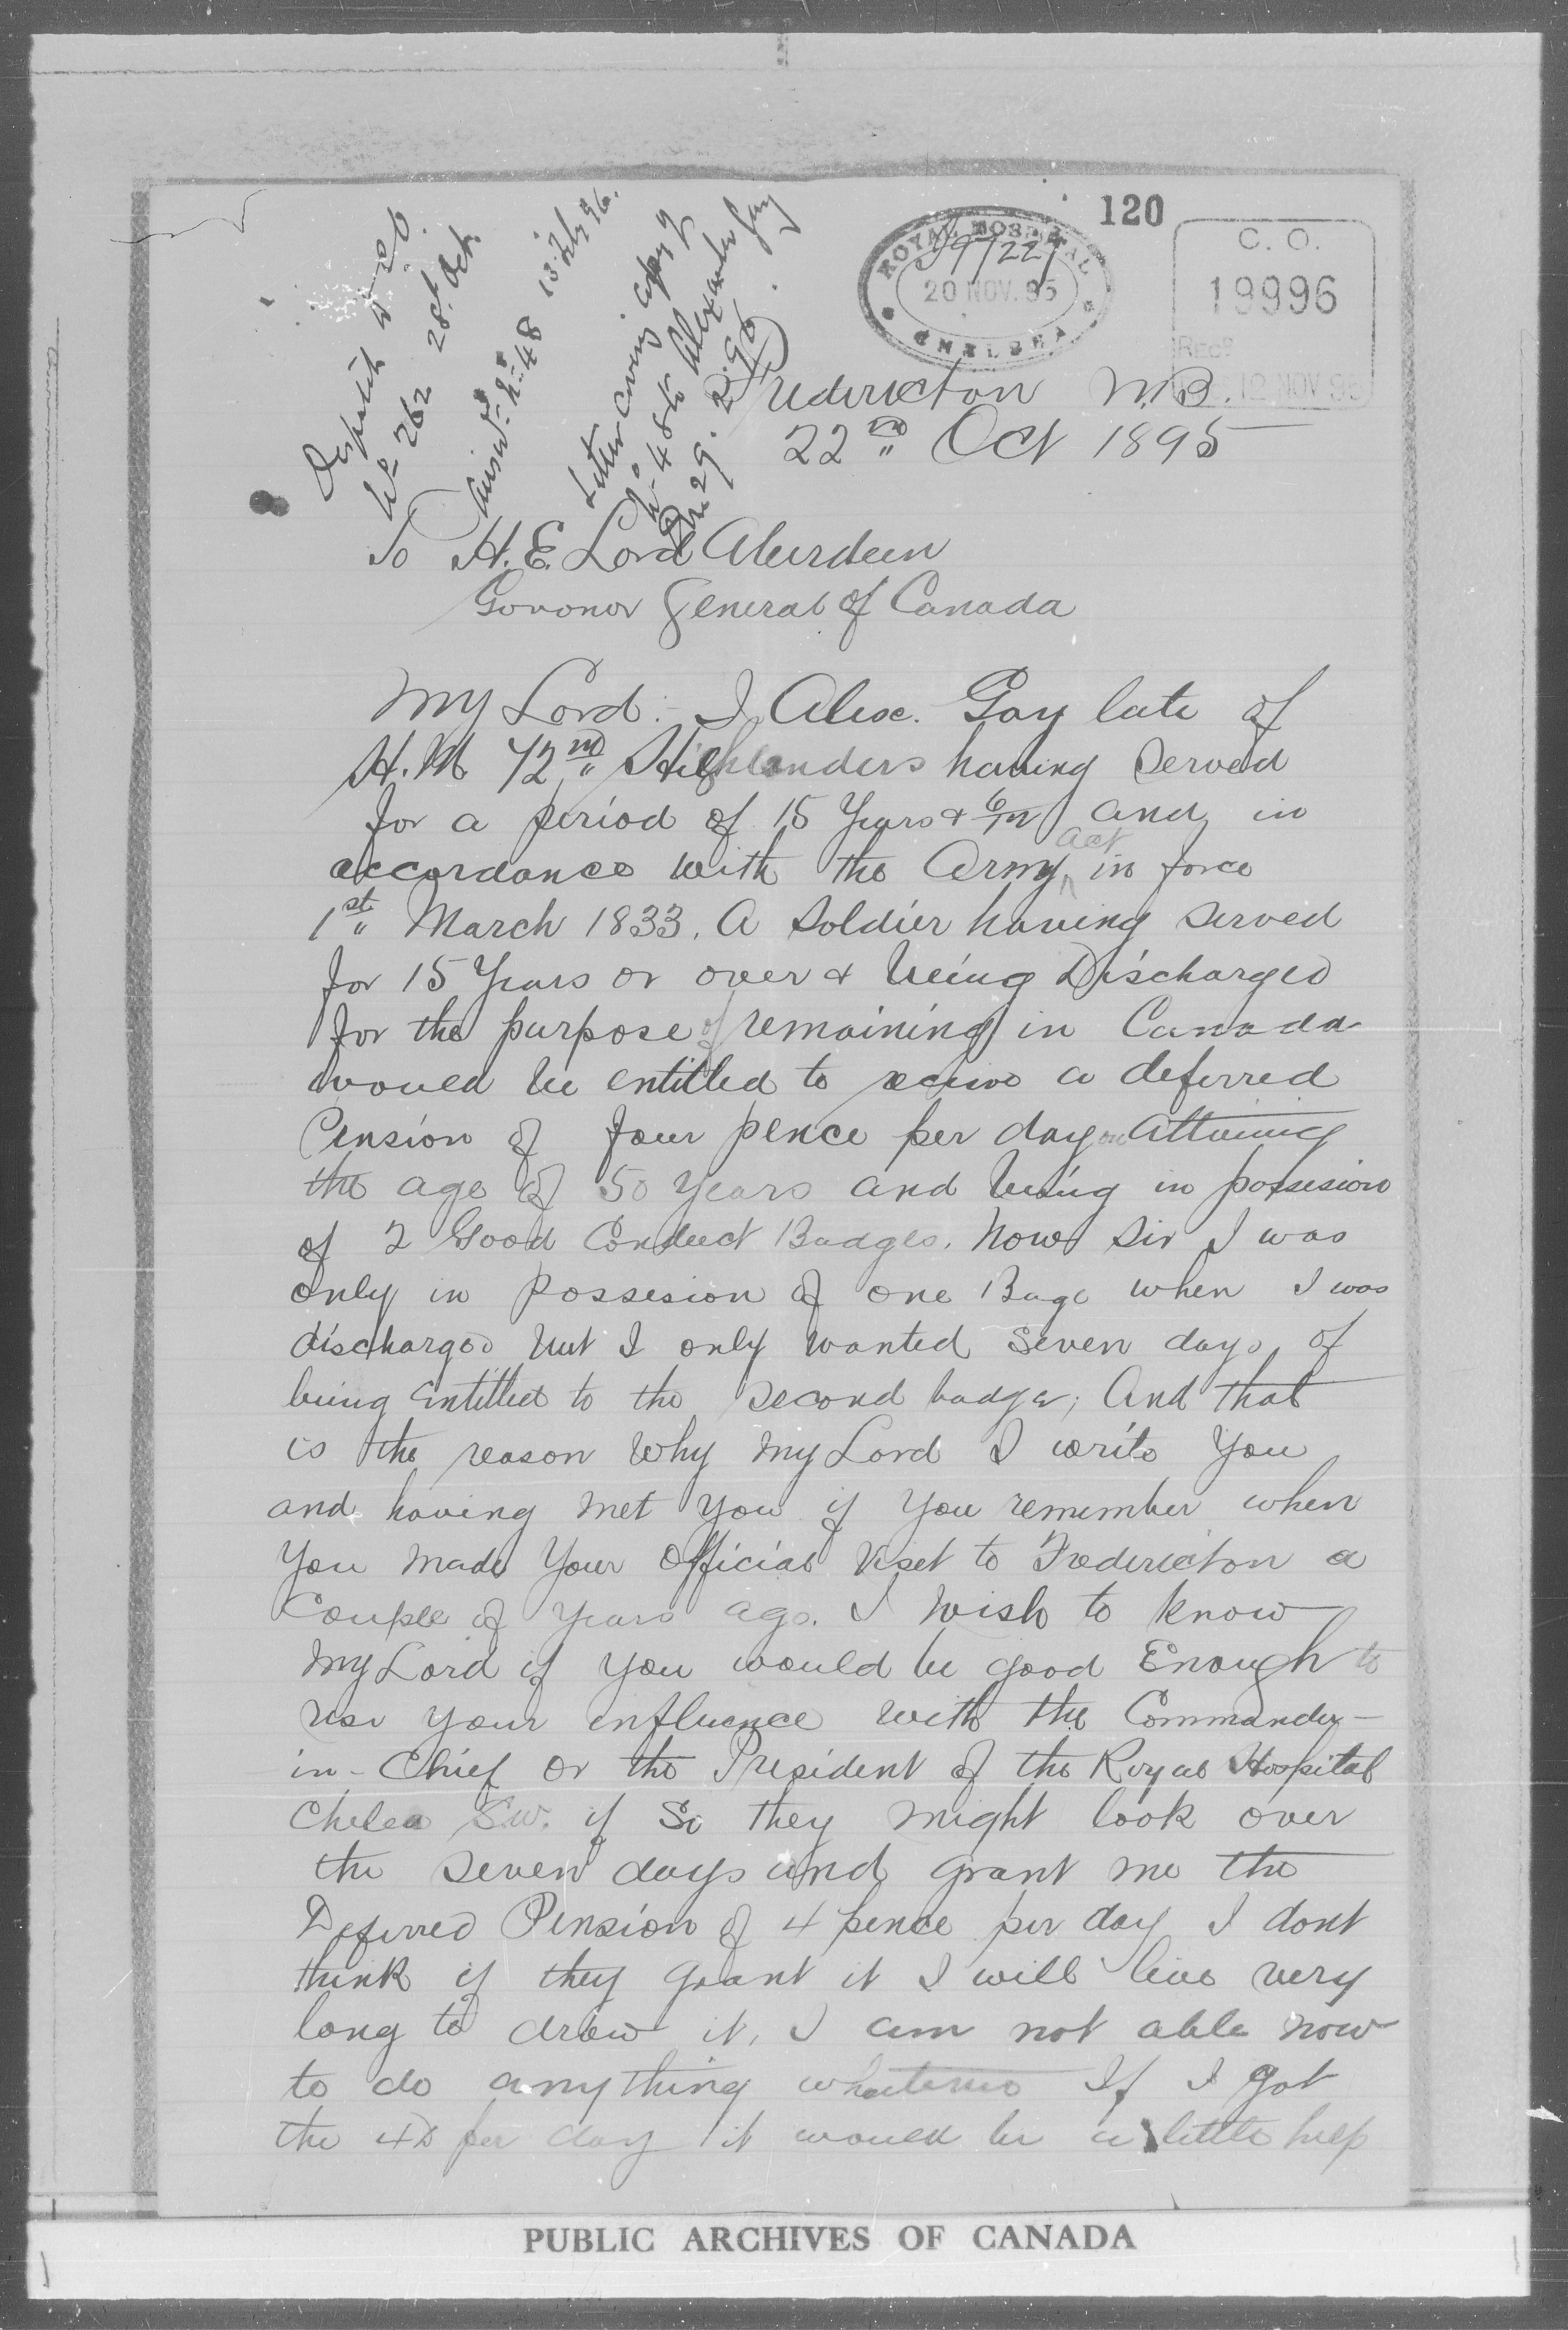 120
ROYAL HOSPITAL
20 NOV. 95
CHELSEA
C. O.
19996
RECD
12 NOV 95
Despatch
No 262 28th Oct
Answd. No 48 13 July 96.
Letter covering copy of
No 48 to Alexander Gay
29. 2. 96.
Fredericton N.B.
22nd Oct 1895
To H. E. Lord Aberdeen
Govonor General of Canada
My Lord :- I Alex. Gay late of
H.M. 72nd Highlanders having served
for a period of 15 Years & 6/12 and in
accordance with the Army act in force
1st March 1833. A Soldier having served
for 15 Years or over & being Discharged
for the purpose of remaining in Canada
would be entitled to recive a deferred
Pension of four pence per day on attaining
the age of 50 years and being in possesion
of 2 Good Conduct Badges. Now Sir I was
only in possesion of one Bage when I was
discharged but I only wanted seven days of
being entitled to the second badge; And that
is the reason why my Lord I write You
and having met you if you remember when
You made Your Official Viset to Fredericton a
Couple of years ago. I wish to know
My Lord if you would be good Enough to
use your influence with the Commander-
in-Chief or the President of the Royal Hospital
Chelea S.W. if so they might look over
the seven days and grant me the
Deferred Pension of 4 pence per day I dont
think if they grant it I will live very
long to draw it, I am not able now
to do anything whatever If I got
the 4D per day it would be a little help
PUBLIC ARCHIVES OF CANADA